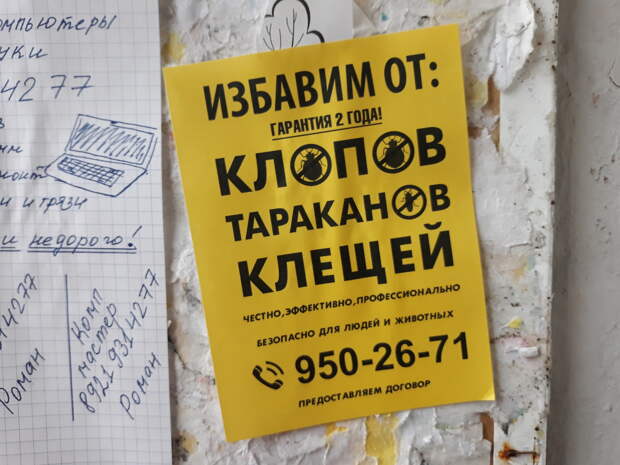 компьютеры
уки
4277
и недорого!
4277
Роман
Комп
мастер
89219314277
Роман
ИЗБАВИМ ОТ:
ГАРАНТИЯ 2 ГОДА!
КЛОПОВ
ТАРАКАНОВ
КЛЕЩЕЙ
ЧЕСТНО, ЭФФЕКТИВНО, ПРОФЕССИОНАЛЬНО
БЕЗОПАСНО ДЛЯ ЛЮДЕЙ И ЖИВОТНЫХ
950-26-71
ПРЕДОСТАВЛЯЕМ ДОГОВОР